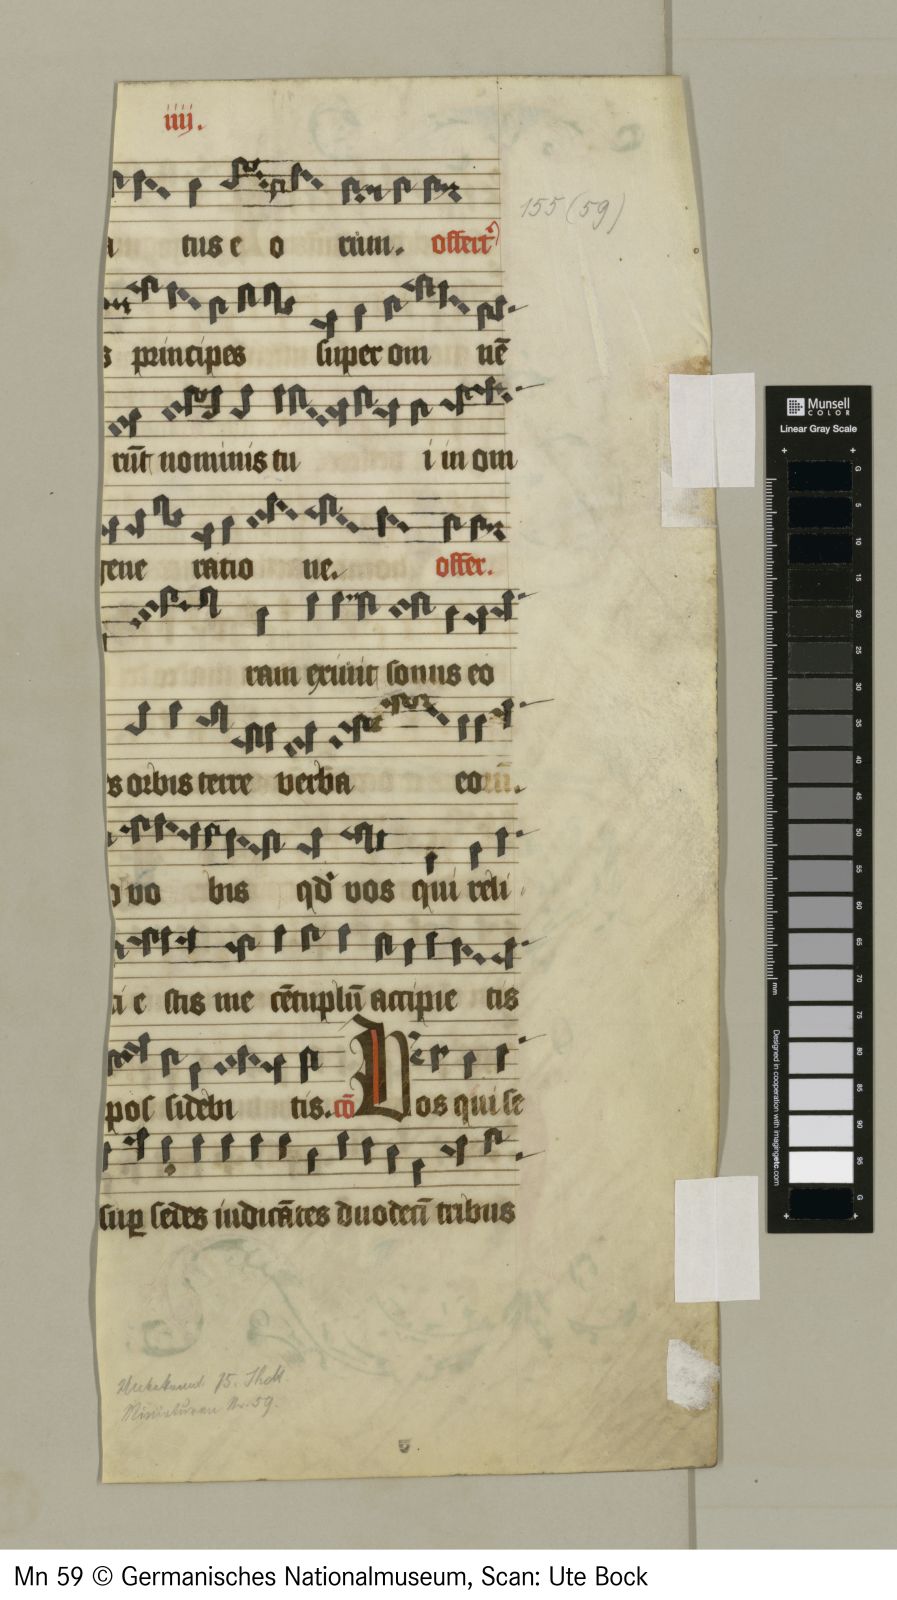 iiij.
155 (59)
tus e o rum. offert
s principes super om nē
rūt nominis tu i in om
gene ratio ne. offer.
ram exiuit sonus eo
s orbis terre verba eorū.
o vo bis qd' vos qui reli
ti e stis me cētuplū accipie tis
pos sidebi tis. cō Vos qui se
sup sedes iudicātes duodeci tribus
Unbekannt 15. Jhdt.
Miniaturen Nr. 59.
5
Munsell
COLOR
Linear Gray Scale
mm
Designed in cooperation with imagingetc.com
G
5
10
15
20
25
30
35
40
45
50
55
60
65
70
75
80
85
90
95
G
Mn 59 © Germanisches Nationalmuseum, Scan: Ute Bock